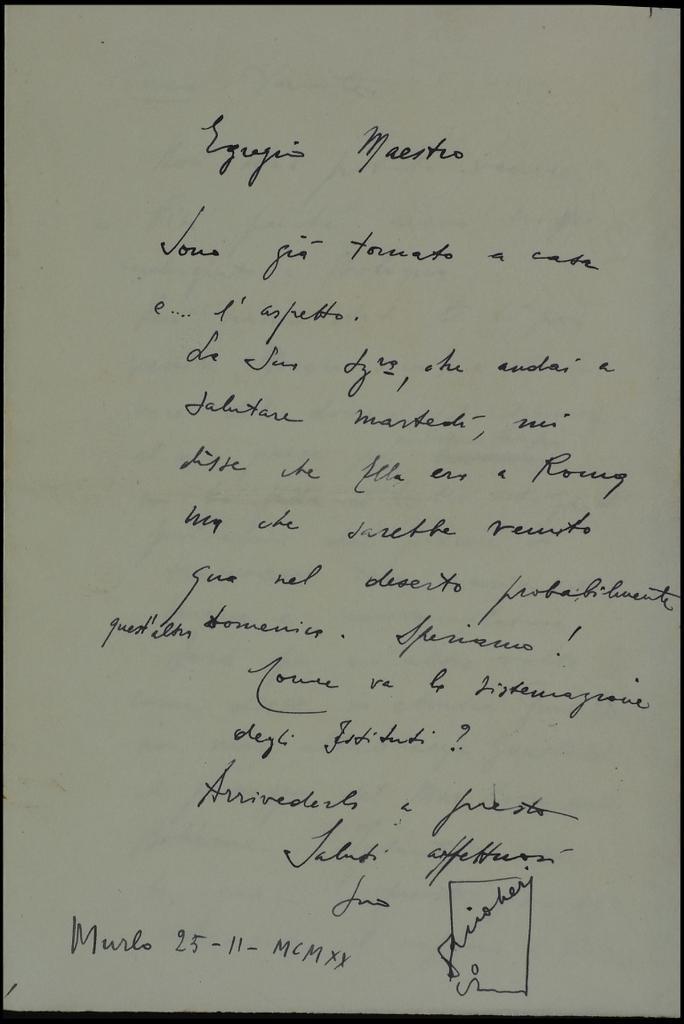 Egregio Maestro
Sono già tornato a casa
e.... l'aspetto.
La Sua Sgra, che andai a
salutare martedì, mi
disse che Ella era a Roma
ma che sarebbe venuto
qua nel deserto probabilmente
quest'altra domenica. Speriamo!
Come va la sistemazione
degli Istituti?
Arrivederla a presto
Saluti affettuosi
Suo
Murlo 25-11-MCMXX